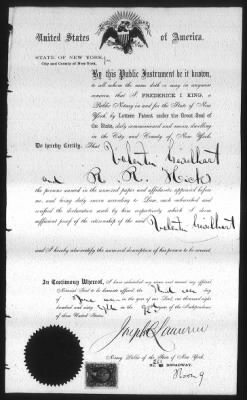 United States of America.
STATE OF NEW YORK,
City and County of New York,
By this Public Instrument be it known,
to all whom the same doth or may in anywise
concern, that I, FREDERICK I KING, a
Public Notary in and for the State of New
York, by Letters Patent under the Great Seal of
the State, duly commissioned and sworn, dwelling
in the City and County of New York,
Do hereby Certify, That
Valentin
and R. R. Hicks
the persons named in the annexed paper and affidavits appeared before
me, and being duly sworn according to Law, each subscribed and
verified the declaration made by him respectively which I deem
sufficient proof of the citizenship of the said
and I hereby also certify the annexed description of his person to be correct.
In Testimony Whereof, I have subscribed my name and caused my official
Notarial Seal to be hereunto affixed the
day of June in the year of our Lord one thousand eight
hundred and sixty and of the Independence
of these United States.
Notary Public of the State of New York.
BROADWAY.
Room 9